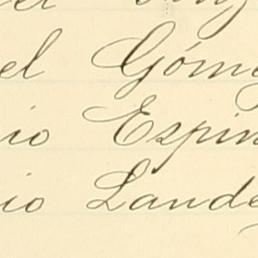 el Góm
io Espin
io Lande